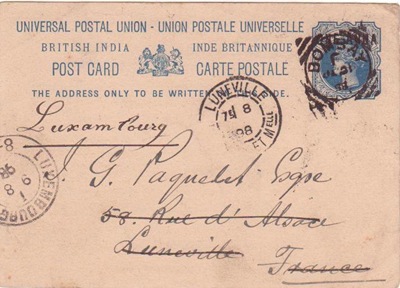 UNIVERSAL POSTAL UNION - UNION POSTALE UNIVERSELLE
BRITISH INDIA INDE BRITANNIQUE
POST CARD CARTE POSTALE
THE ADDRESS ONLY TO BE WRITTEN
BOMBAY
LUNEVILLE
8
98
ET MELLE
Luxembourg
LUXEMBOURG
J. G. Paquelet Eqre
58. Rue d'Alsace
Luneville
France